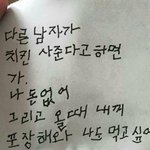 다른 남자가
치킨 사준다고하면
가.
나 돈없어
그리고 올때 내께
포장해와 나도 먹고싶어